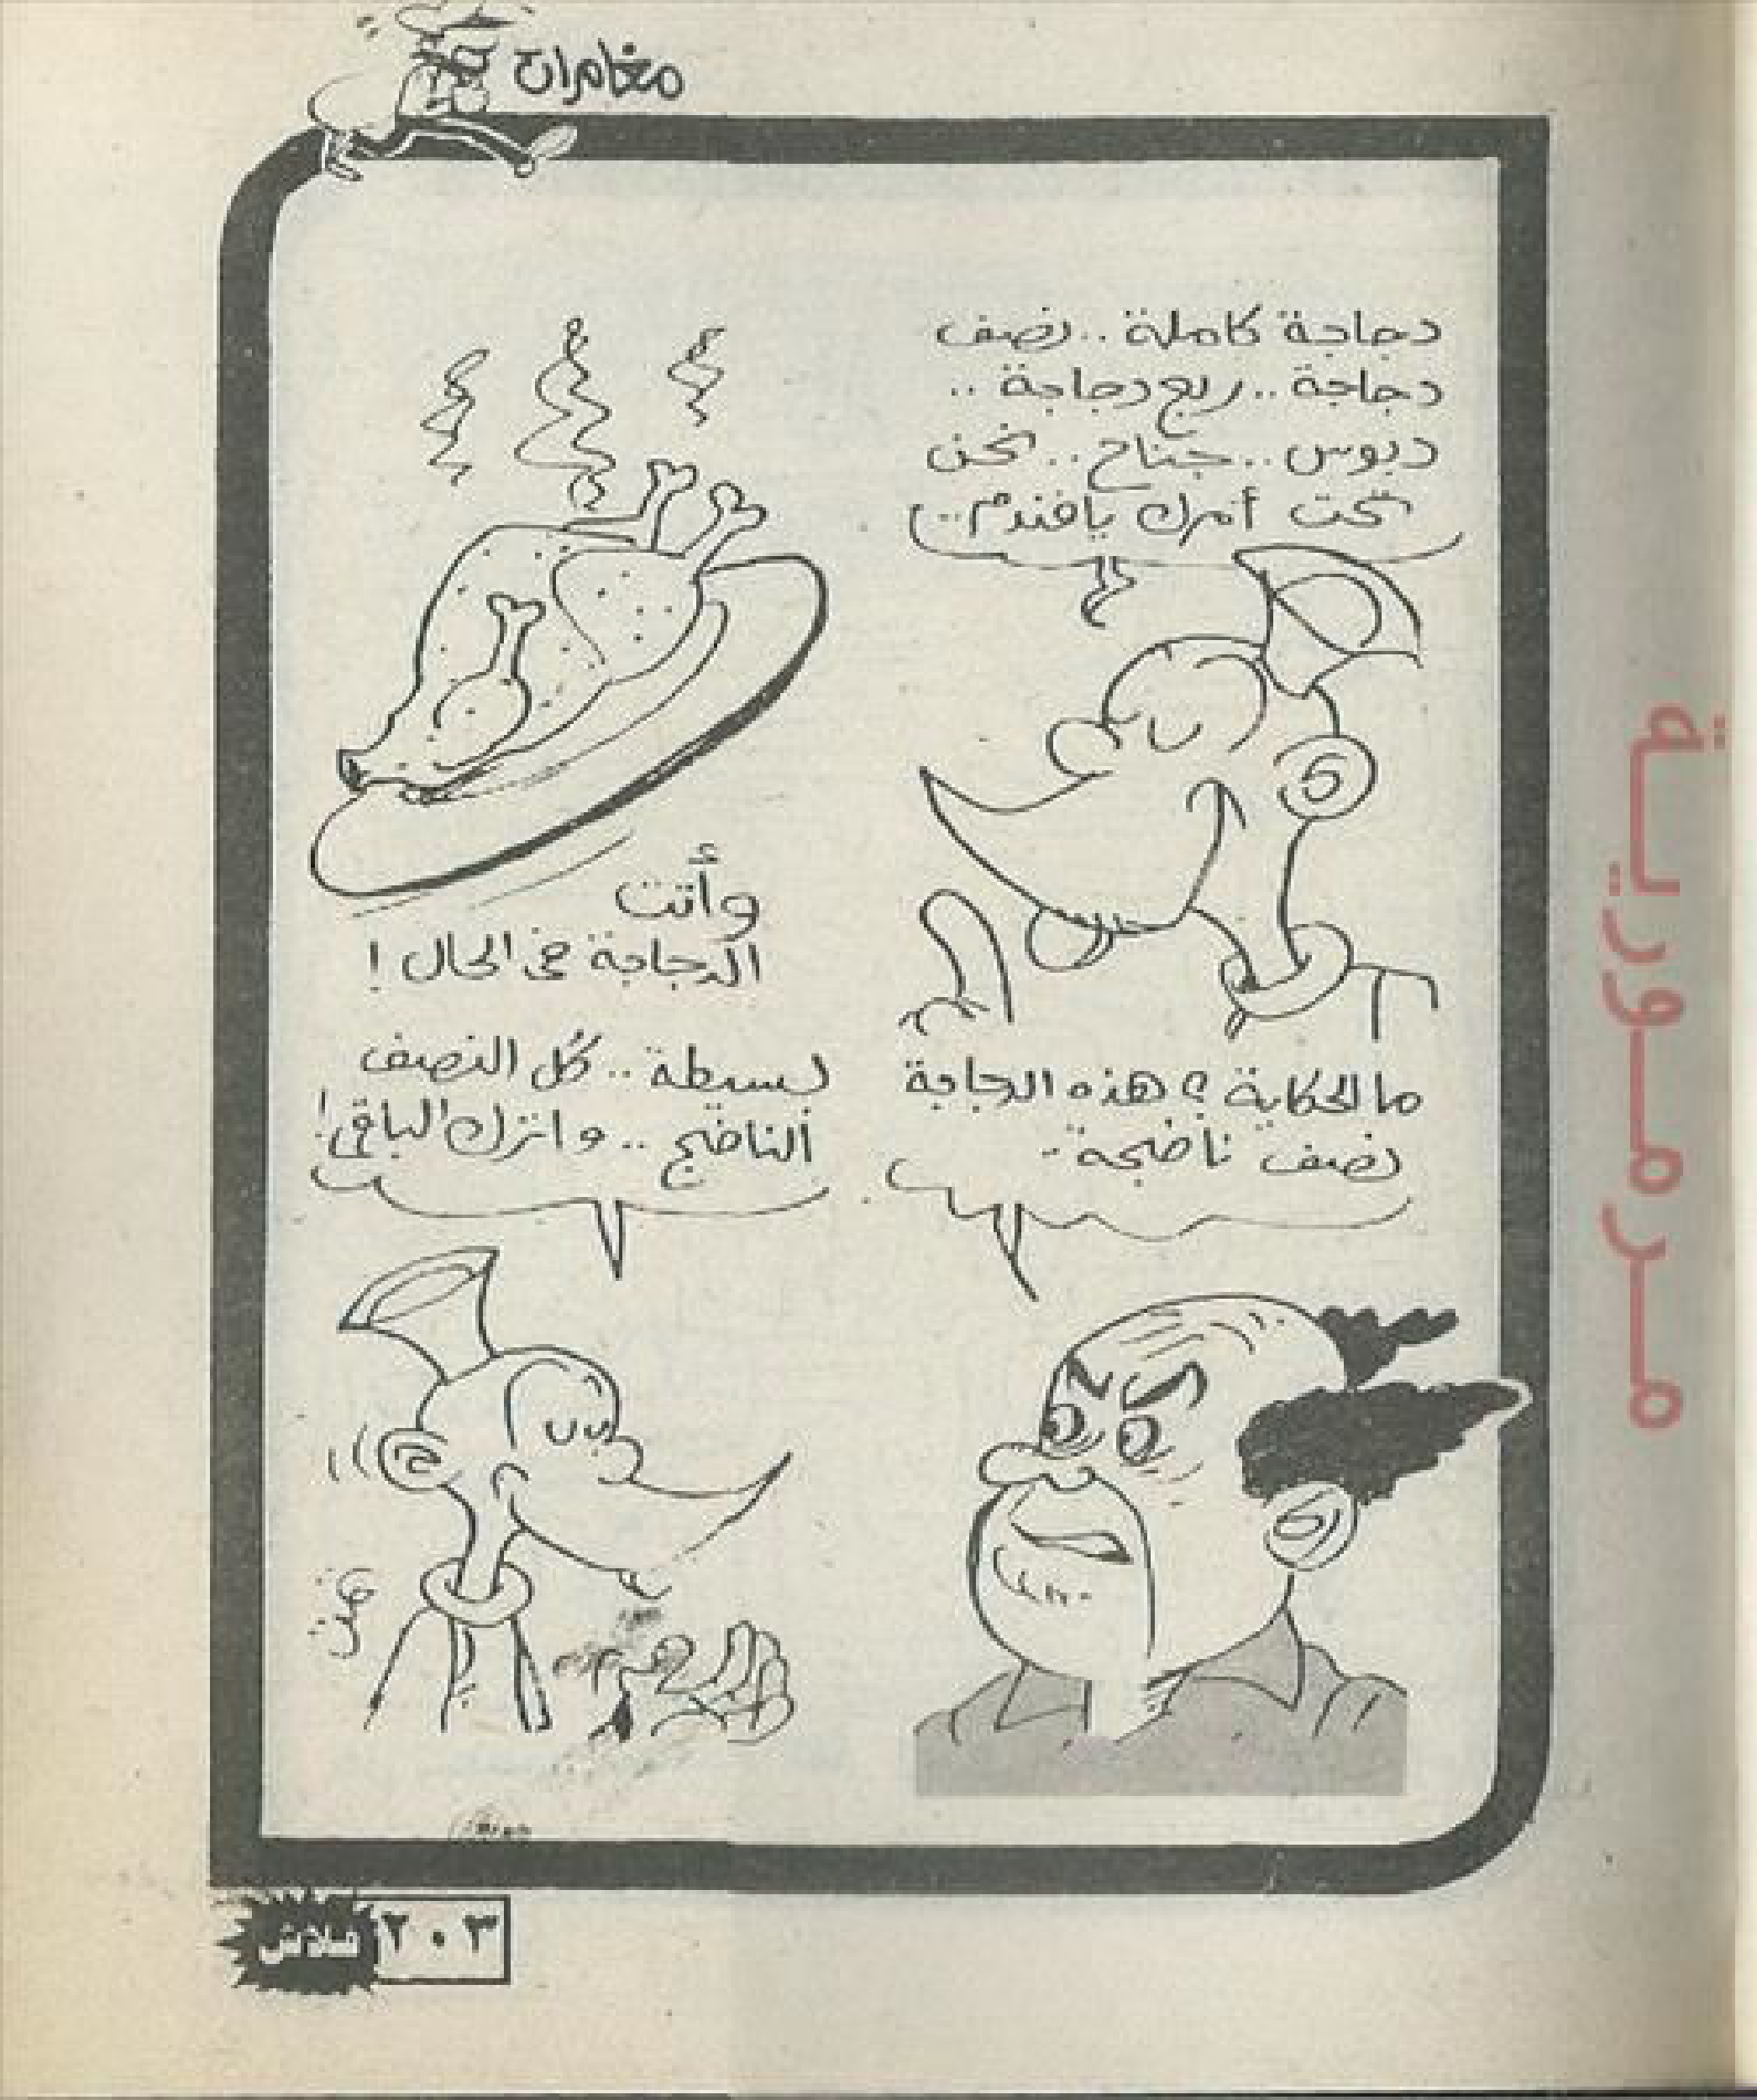 مغامرات
دجاجة كاملة .. نصف
دجاجة .. ربع دجاجة ..
دبوس .. جناح .. نحن
تحت أمرك يا فندم ..
وأتت
الدجاجة في الحال !
ما الحكاية ؟ هذه الدجاجة
نصف ناضجة ..
بسيطة .. كُل النصف
الناضج .. واترك الباقي !
٢٠٣
فلاش
مرمورية